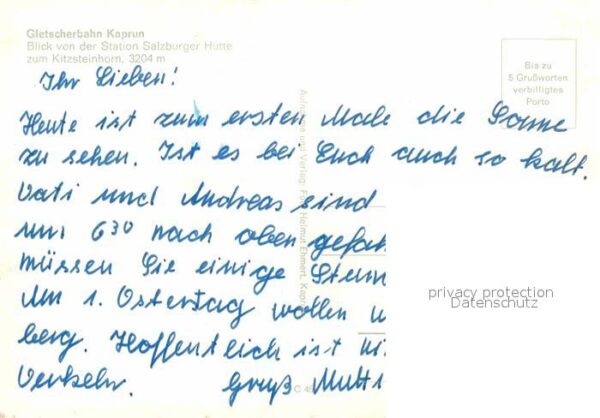 Gletscherbahn Kaprun
Blick von der Station Salzburger Hütte
zum Kitzsteinhorn, 3204 m
Bis zu
5 Grußworten
verbilligtes
Porto
Ihr Lieben!
Heute ist zum ersten Male die Sonne
zu sehen. Ist es bei Euch auch so kalt.
Vati und Andreas sind
um 6³⁰ nach oben gefah
müssen Sie einige Stun
Am 1. Ostertag wollen w
berg. Hoffentlich ist
Verkehr. Gruß Mutti
Aufnahme und Verlag: Helmut Ehmert, Kaprun
privacy protection
Datenschutz